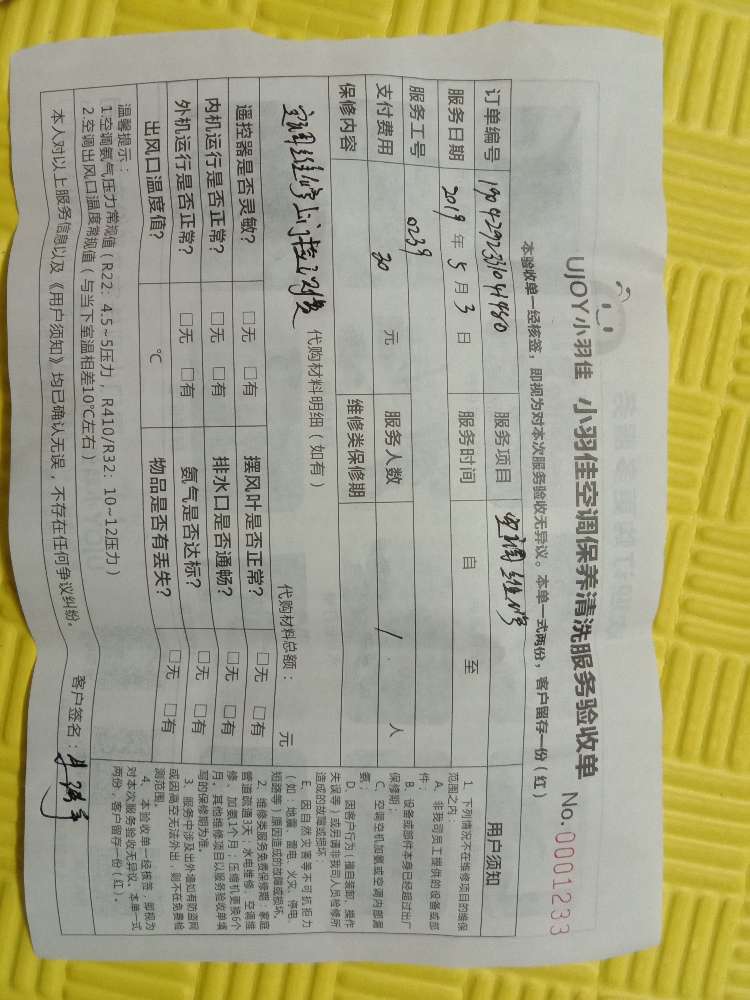 UJOY小羽佳 小羽佳空调保养清洗服务验收单 No. 0001233
本验收单一经核签，即视为对本次服务验收无异议。本单一式两份，客户留存一份（红）
订单编号 服务项目 空调维修
服务日期 2019 年 5 月 3 日 服务时间 自 至
服务工号 0239
支付费用 30 元 服务人数 1 人
保修内容 维修类保修期
空调维修上门检测费 代购材料明细（如有） 代购材料总额： 元
遥控器是否灵敏？ □无 □有 摆风叶是否正常？ □无 □有
内机运行是否正常？ □无 □有 排水口是否通畅？ □无 □有
外机运行是否正常？ □无 □有 氨气是否达标？ □无 □有
出风口温度值？ ℃ 物品是否有丢失？ □无 □有
温馨提示：
1.空调氨气压力常规值（R22：4.5~5压力，R410/R32：10~12压力）
2.空调出风口温度常规值（与当下室温相差10℃左右）
本人对以上服务信息以及《用户须知》均已确认无误，不存在任何争议纠纷。 客户签名：
用户须知
1、下列情况不在维修项目的维保
范围之内：
A、非我司员工提供的设备或部
件；
B、设备或部件本身已经超过出厂
保修期；
C、空调空机加氨或空调内部漏
氨；
D、因客户行为（擅自装卸、操作
失误等）或另请非我司人员检修所
造成的故障或损坏.
E、因自然灾害等不可抗拒力
（如：地震、雷电、火灾、停电、
短路等）原因造成的故障或损坏。
2、维修类服务免费保修期：家庭
管道疏通3天；水电维修、空调维
修、加氨1个月；压缩机更换6个
月，其他维修项目以服务验收单填
写的保修期为准。
3、服务中涉及出外墙如有防盗网
或因高空无法外出，则不在免费检
测范围。
4、本验收单一经核签，即视为
对本次服务验收无异议。本单一式
两份，客户留存一份（红）。